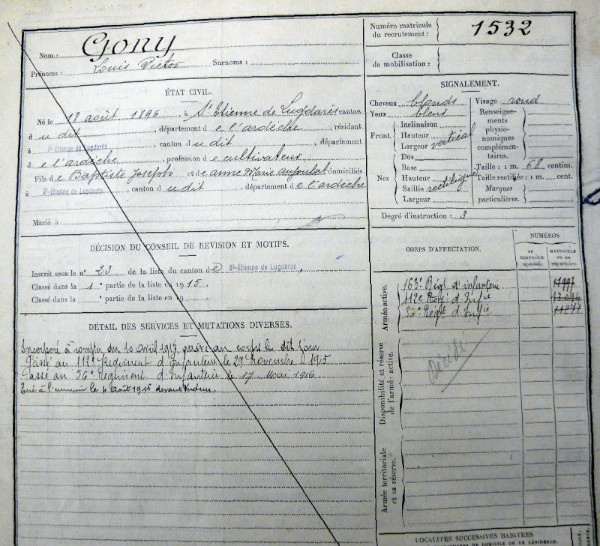 Nom : Gony
Prénoms : Louis Victor Surnoms :
Numéro matricule du recrutement : 1532
Classe de mobilisation :
ÉTAT CIVIL.
Né le 18 août 1896, à St Etienne de Lugdarès canton
d udit, département de l'ardèche, résidant
à St-Etienne de Lugdarès, canton d udit, département
de l'ardèche, profession de cultivateur
Fils de Baptiste Joseph et de anne Marie domiciliés
à St-Etienne de Lugdarès, canton d udit, département de l'ardèche
Marié à
SIGNALEMENT.
Cheveux blonds Visage rond
Yeux bleus
Front. Inclinaison
Hauteur vertical
Largeur
Nez Dos
Base
Hauteur
Saillie rectiligne
Largeur
Renseignements physionomiques complémentaires.
Taille : 1 m. 68 centim.
Taille rectifiée : 1 m. cent.
Marques particulières.
Degré d'instruction : 3
DÉCISION DU CONSEIL DE REVISION ET MOTIFS.
Inscrit sous le n° 23 de la liste du canton de St-Etienne de Lugdarès,
Classé dans la 1e partie de la liste en 1915.
Classé dans la partie de la liste en
CORPS D'AFFECTATION.
NUMÉROS
Armée active.
163e Régt d'infanterie
112e Régt d'Infie
36e Régt d'Infie
Disponibilité et réserve de l'armée active.
Décédé
Armée territoriale et sa réserve.
DÉTAIL DES SERVICES ET MUTATIONS DIVERSES.
Incorporé à compter du 10 avril 1915, arrivé au corps le dit jour
Passé au 112e Régiment d'Infanterie le 29 Novembre 1915
Passé au 36e Régiment d'Infanterie le 17 Mai 1916
Tué à l'ennemi le 4 Août 1916 devant Verdun
LOCALITÉS SUCCESSIVES HABITÉES